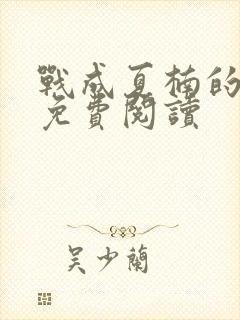 戰成夏楠的
免費閱讀
吴少蘭